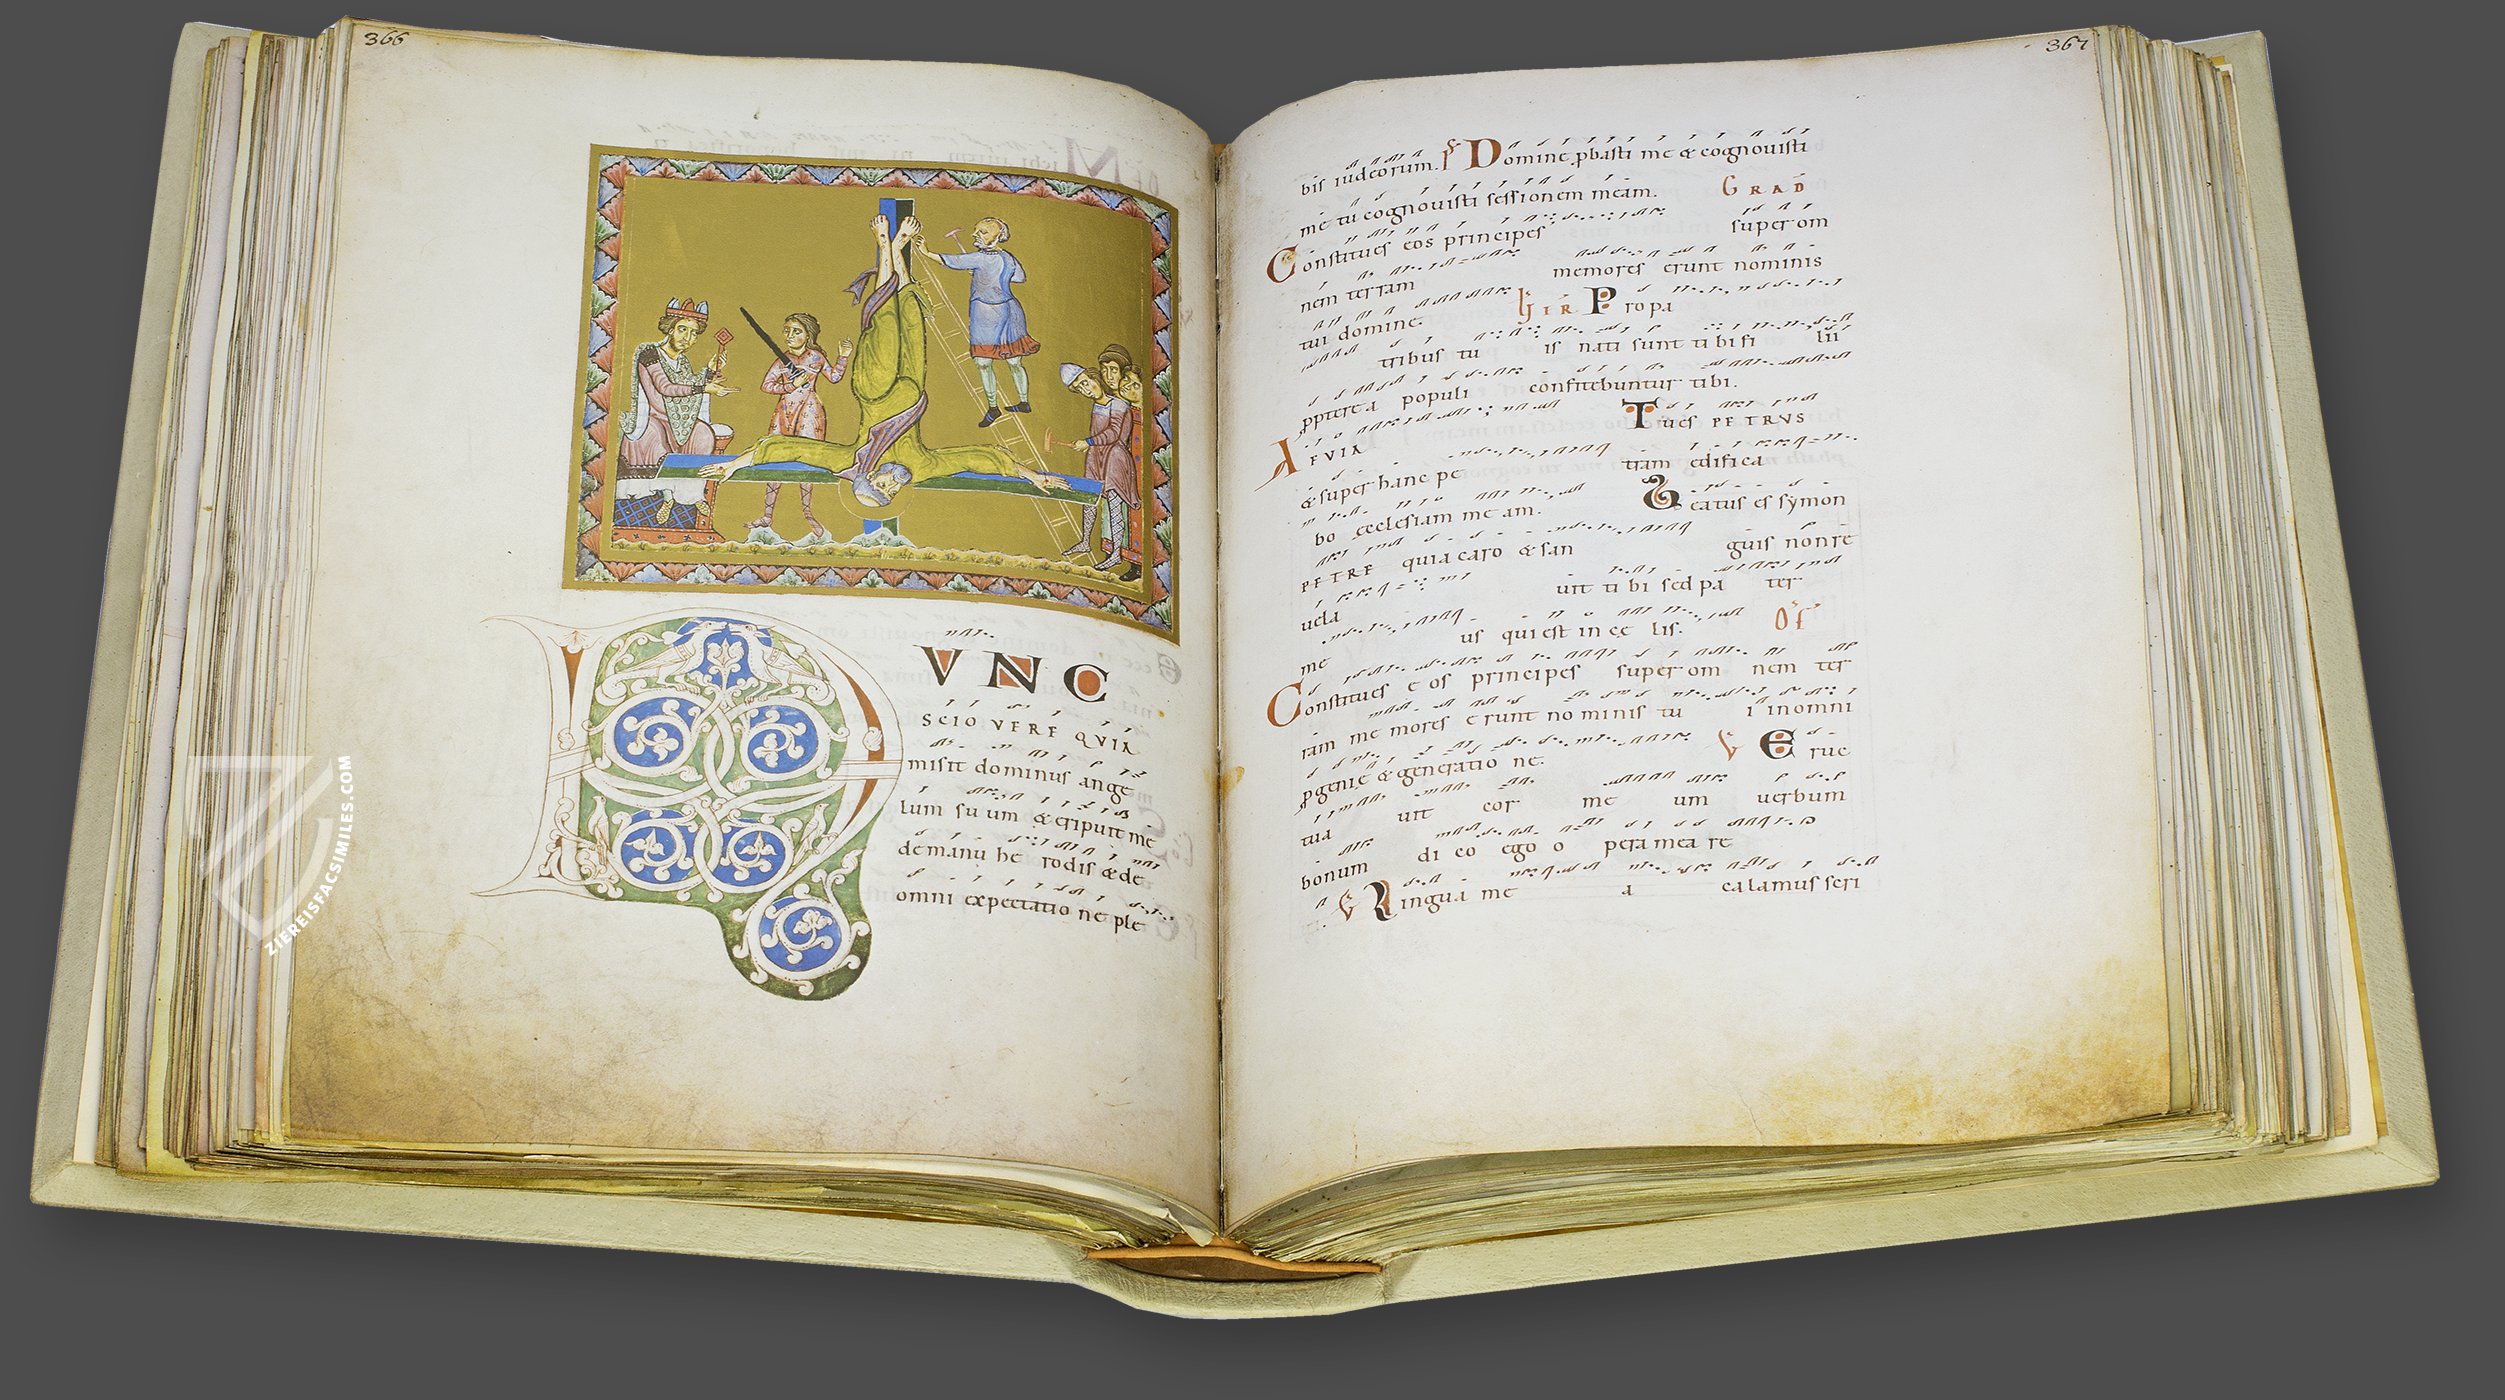 366
VNC
SCIO VERE QVIA
misit dominus ange
lum su um & eripuit me
demanu he rodis & de
omni expectatio ne ple
367
bis iudeorum. Ps Domine pbasti me & cognouisti
me tu cognouisti sessionem meam. GRAD
Constitues eos principes super om
nem terram memores erunt nominis
tui domine. P ro pa
tribus tu is nati sunt ti bi fi lii
ppterea populi confitebuntur tibi.
Tu es PETRVS
& super hanc pe tram edifica
bo ecclesiam me am. Beatus es symon
PETRE quia caro & san guis non re
uela uit ti bi sed pa ter
me us qui est in ce lis. Of
Constitues e os principes super om nem ter
ram me mores erunt no minis tu i in omni
pgenie & generatio ne. V E ruc
tua uit cor me um uerbum
bonum di co ego o pera mea re
V Lingua me a calamus scri
ZIEREISFACSIMILES.COM